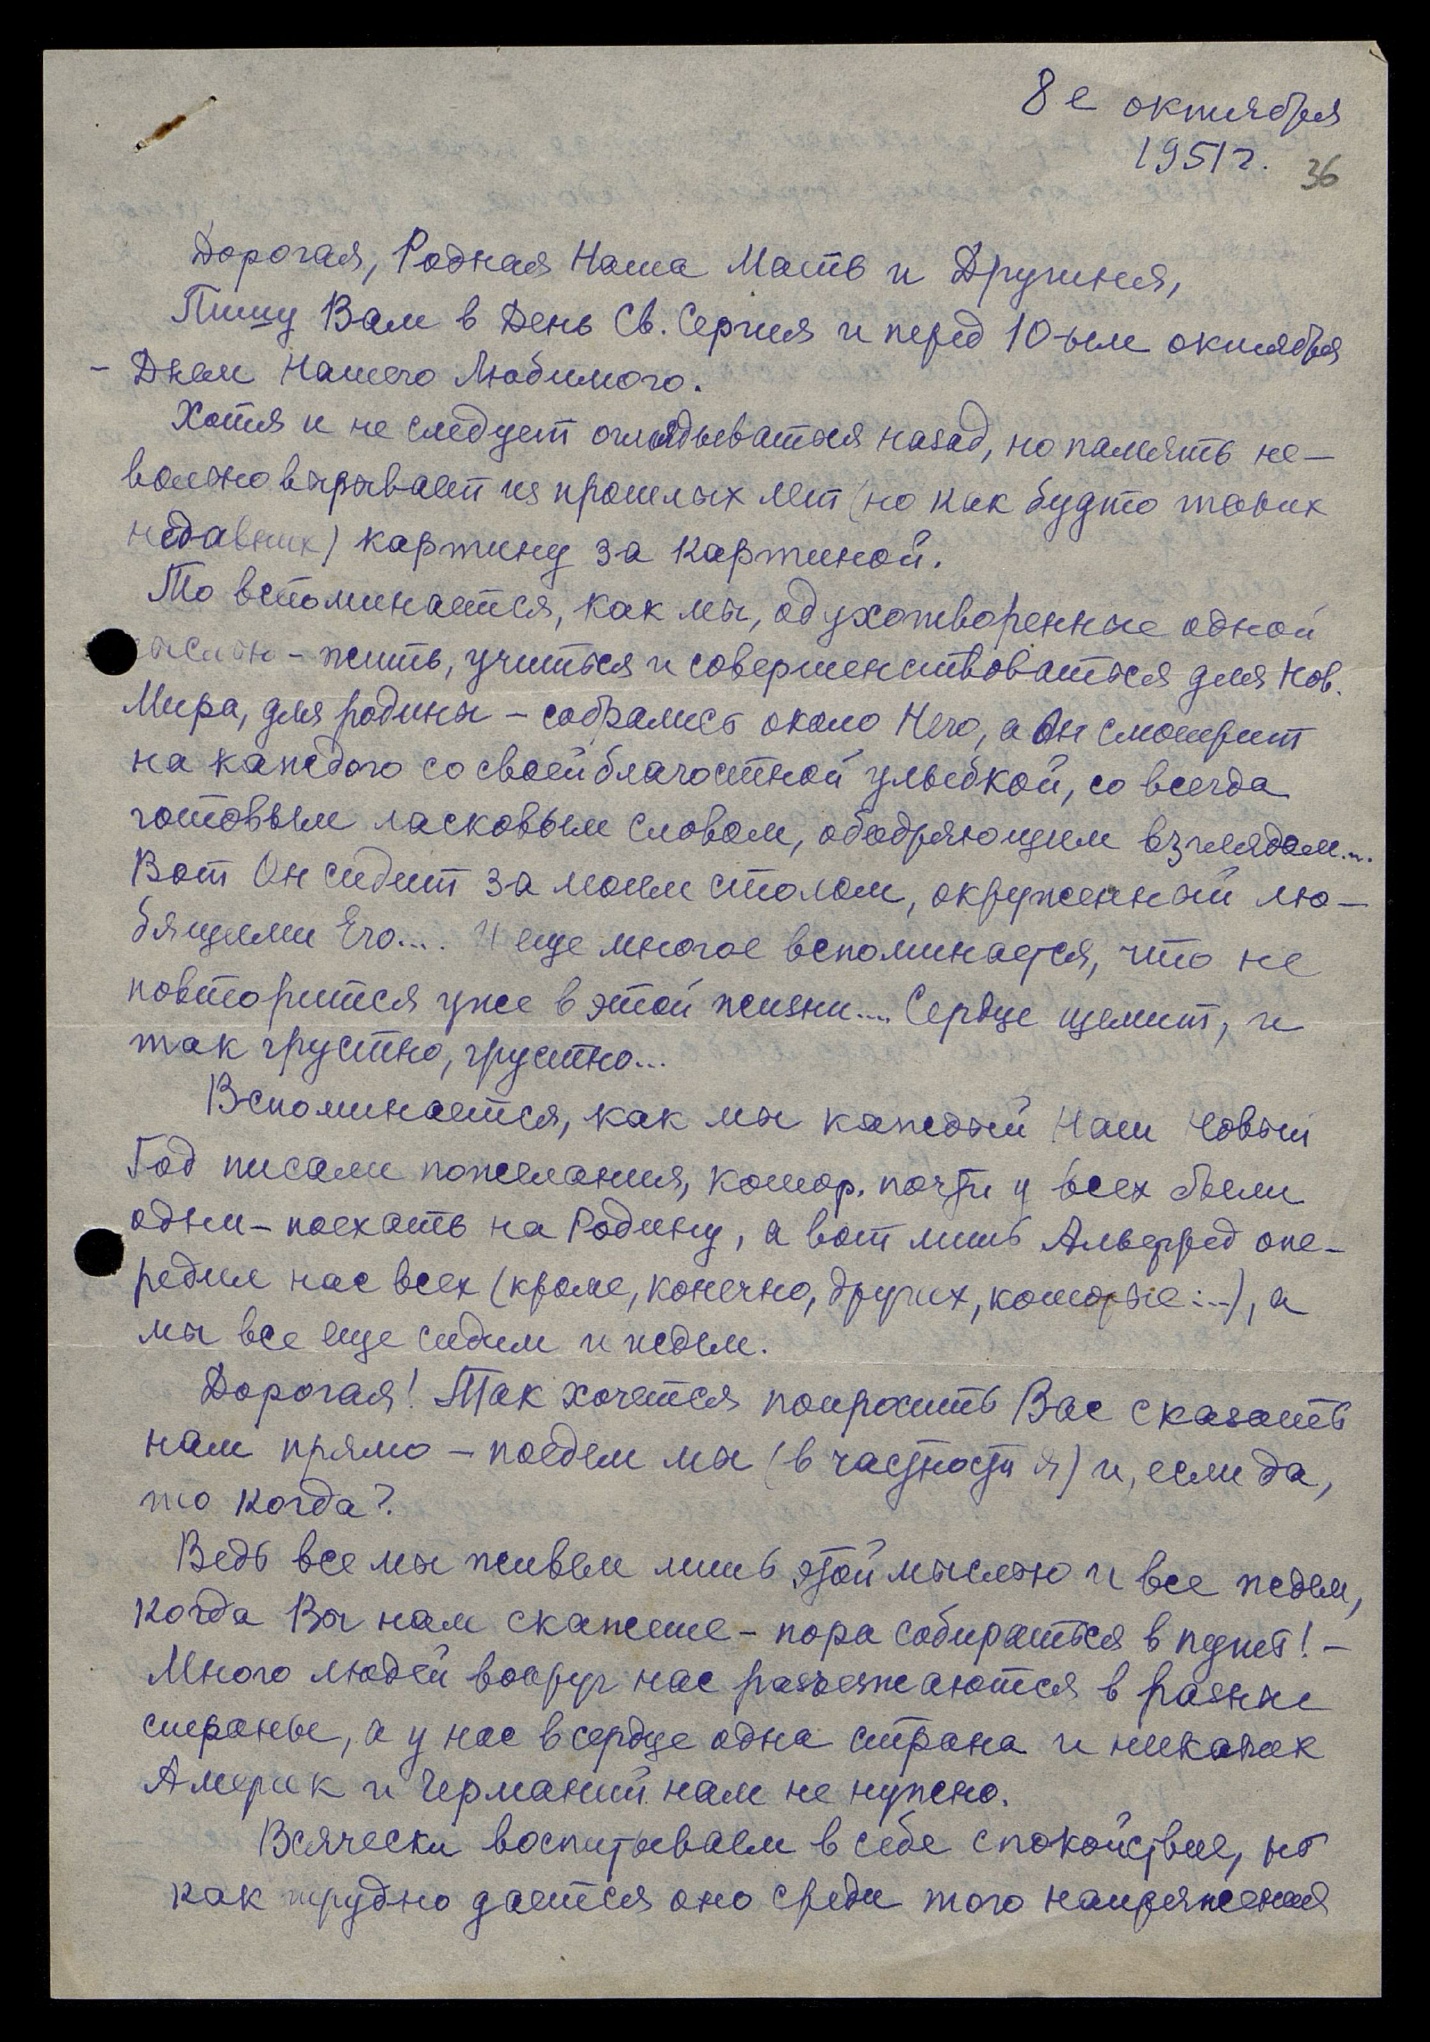 8е октября
1951г.
36
Дорогая, Родная Наша Мать и Дружина,
Пишу Вам в День Св. Сергия и перед 10-ым октября
- Днем Нашего Любимого.
Хотя и не следует оглядываться назад, но память не-
вольно вырывает из прошлых лет (но как будто таких
недавних) картину за картиной.
То вспоминается, как мы, одухотворенные одной
мыслью - жить, учиться и совершенствоваться для Нов.
Мира, для родины - собрались около Него, а Он смотрит
на каждого со своей благостной улыбкой, со всегда
готовым ласковым словом, ободряющим взглядом...
Вот Он сидит за моим столом, окруженный лю-
бящими Его.... И еще многое вспоминается, что не
повторится уже в этой жизни.... Сердце щемит, и
так грустно, грустно...
Вспоминается, как мы каждый Наш Новый
Год писали пожелания, котор. почти у всех были
одни - поехать на Родину, а вот лишь Альфред опе-
редил нас всех (кроме, конечно, других, которые ...), а
мы все еще сидим и ждем.
Дорогая! Так хочется попросить Вас сказать
нам прямо - поедем мы (в частности я) и, если да,
то когда?
Ведь все мы живем лишь этой мыслью и все ждем,
когда Вы нам скажете - пора собираться в путь! -
Много людей вокруг нас разъезжаются в разные
страны, а у нас в сердце одна страна и никаких
Америк и Германий нам не нужно.
Всячески воспитываем в себе спокойствие, но
как трудно дается оно среди того напряжения